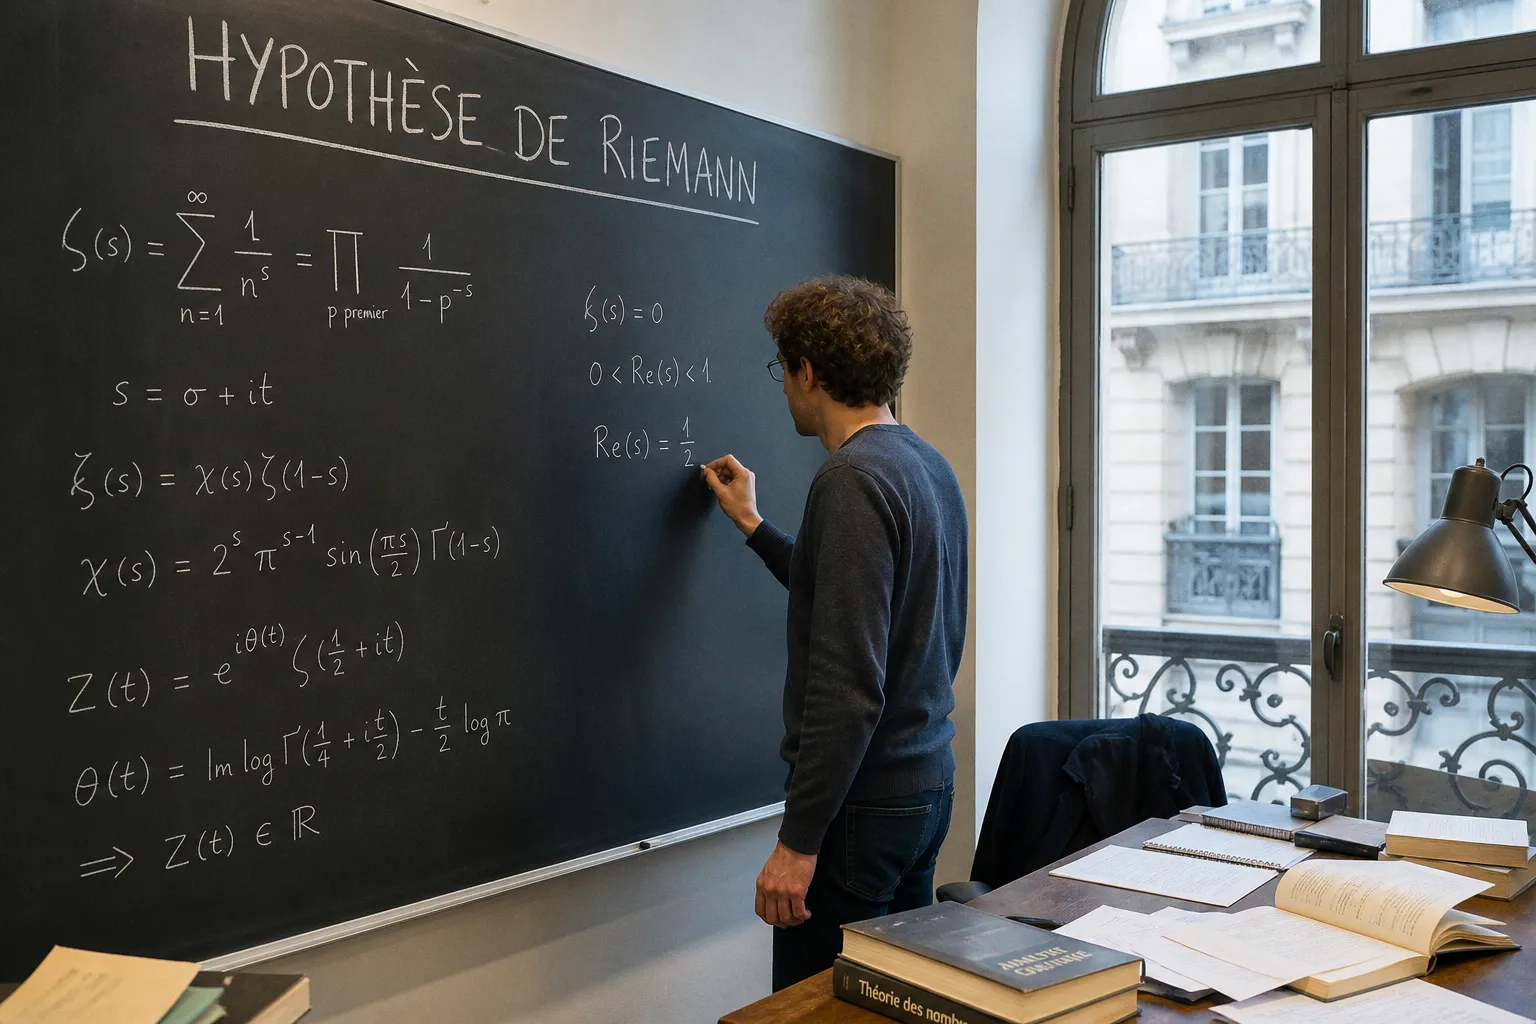 HYPOTHÈSE DE RIEMANN
ζ(s) = ∑_{n=1}^{∞} 1/n^s = ∏_{p premier} 1/(1-p^{-s})
s = σ + it
ζ(s) = χ(s) ζ(1-s)
χ(s) = 2^s π^{s-1} sin(πs/2) Γ(1-s)
Z(t) = e^{iθ(t)} ζ(1/2 + it)
θ(t) = Im log Γ(1/4 + i t/2) - t/2 log π
⇒ Z(t) ∈ ℝ
ζ(s) = 0
0 < Re(s) < 1
Re(s) = 1/2
Théorie des nomb